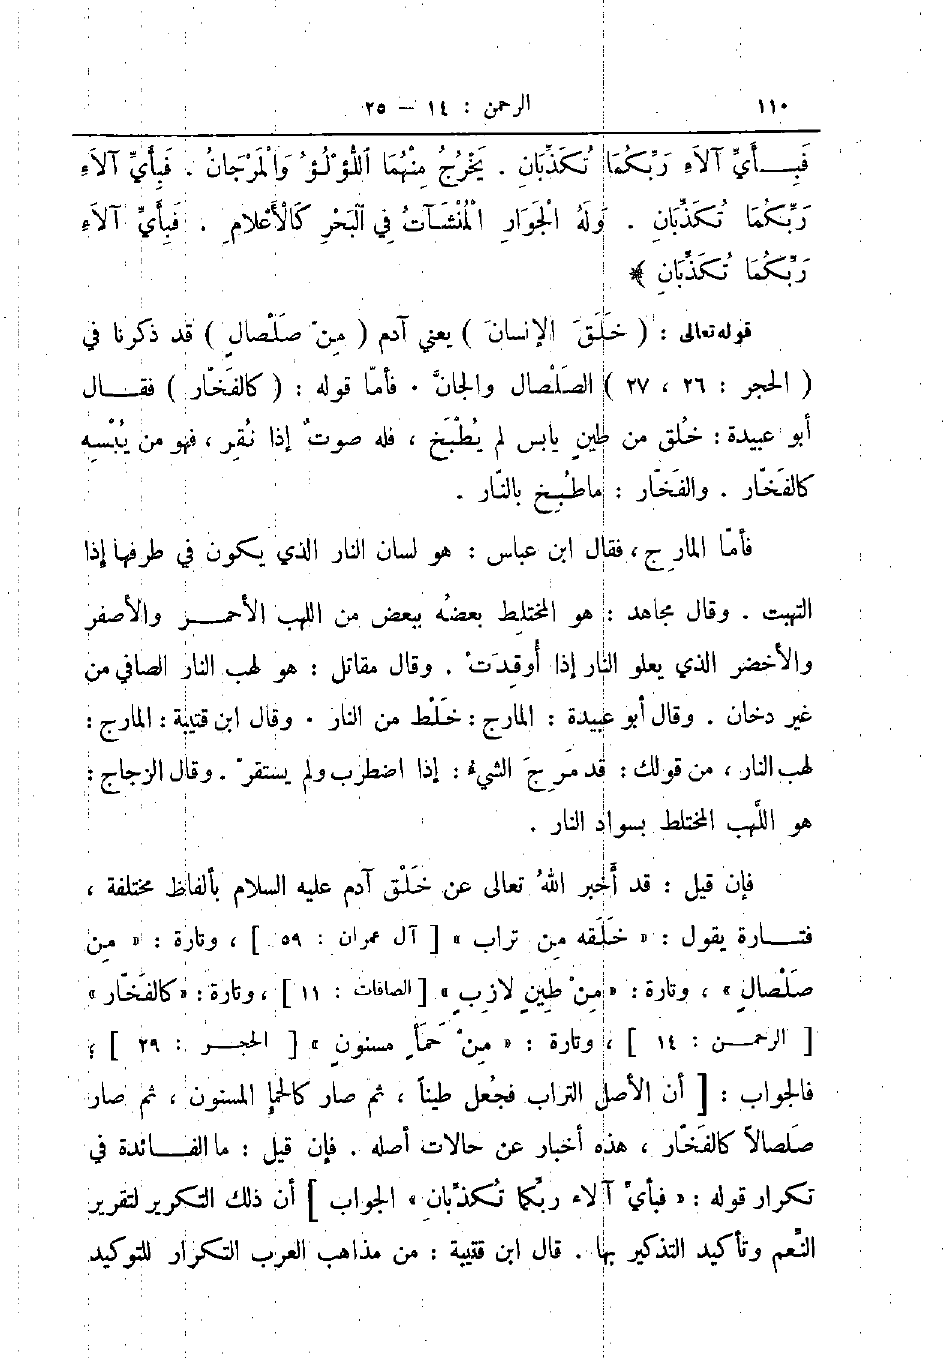 ١١٠ الرحمن : ١٤ – ٢٥
فَبِــأَيِّ آلاَءِ رَبِّكُمَا تُكَذِّبَانِ . يَخْرُجُ مِنْهُمَا اللُّؤْلُؤُ وَالْمَرْجَانُ . فَبِأَيِّ آلاَءِ
رَبِّكُمَا تُكَذِّبَانِ . وَلَهُ الْجَوَارِ الْمُنْشَآتُ فِي الْبَحْرِ كَالْأَعْلَامِ . فَبِأَيِّ آلاَءِ
رَبِّكُمَا تُكَذِّبَانِ ﴾
قوله تعالى : ( خَلَقَ الإنسانَ ) يعني آدم ( مِنْ صَلْصالٍ ) قد ذكرنا في
( الحجر : ٢٦ ، ٢٧ ) الصَلْصال والجانَّ . فأمّا قوله : ( كالفَخّار ) فقــال
أبو عبيدة : خُلق من طينٍ يابس لم يُطْبَخ ، فله صوتٌ إذا نُقِر ، فهو من يُبْسِه
كالفَخّار . والفَخّار : ماطُبِخ بالنّار .
فأمّا المارِج ، فقال ابن عباس : هو لسان النار الذي يكون في طرفها إذا
التهبت . وقال مجاهد : هو المختلِط بعضُه ببعض من اللهب الأحمــر والأصفر
والأخضر الذي يعلو النار إذا أُوقِدَتْ . وقال مقاتل : هو لهب النار الصافي من
غير دخان . وقال أبو عبيدة : المارج : خَلْط من النار . وقال ابن قتيبة : المارج :
لهب النار ، من قولك : قد مَرِجَ الشيءُ : إذا اضطرب ولم يستقرْ . وقال الزجاج :
هو اللَّهب المختلط بسواد النار .
فإن قيل : قد أَخبر اللهُ تعالى عن خَلْق آدم عليه السلام بألفاظ مختلفة ،
فتــارة يقول : « خَلَقه مِن تراب » [ آل عمران : ٥٩ ] ، وتارة : « مِن
صَلْصالٍ » ، وتارة : « مِنْ طينٍ لازبٍ » [ الصافات : ١١ ] ، وتارة : « كالفَخّار »
[ الرحمــن : ١٤ ] ، وتارة : « مِنْ حَمَأٍ مسنونٍ » [ الحجــر : ٢٩ ] ؛
فالجواب : [ أن الأصل التراب فجُعل طيناً ، ثم صار كالحمإ المسنون ، ثم صار
صَلصالاً كالفَخّار ، هذه أخبار عن حالات أصله . فإن قيل : ما الفــائدة في
تكرار قوله : « فبأيْ آلاء ربِّكما تُكذِّبان » الجواب ] أن ذلك التكرير لتقرير
النِّعم وتأكيد التذكير بها . قال ابن قتيبة : من مذاهب العرب التكرار للتوكيد